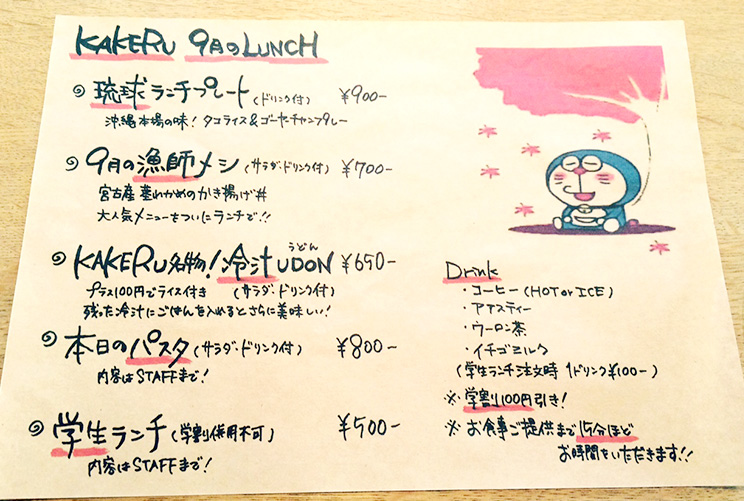 KAKERU 9月のLUNCH
琉球ランチプレート(ドリンク付) ¥900-
沖縄本場の味! タコライス&ゴーヤーチャンプルー
9月の漁師メシ (サラダ・ドリンク付) ¥700-
宮古産 茎わかめのかき揚げ丼
大人気メニューをついにランチで!!
うどん
KAKERU名物!冷汁UDON ¥650-
プラス100円でライス付き (サラダ・ドリンク付)
残った冷汁にごはんを入れるとさらに美味しい!
本日のパスタ(サラダ・ドリンク付) ¥800-
内容はSTAFFまで!
学生ランチ(学割併用不可) ¥500-
内容はSTAFFまで!
Drink
・コーヒー(HOT or ICE)
・アイスティー
・ウーロン茶
・イチゴミルク
(学生ランチ注文時 1ドリンク¥100-)
※学割100円引き!
※お食事ご提供まで15分ほど
お時間をいただきます!!